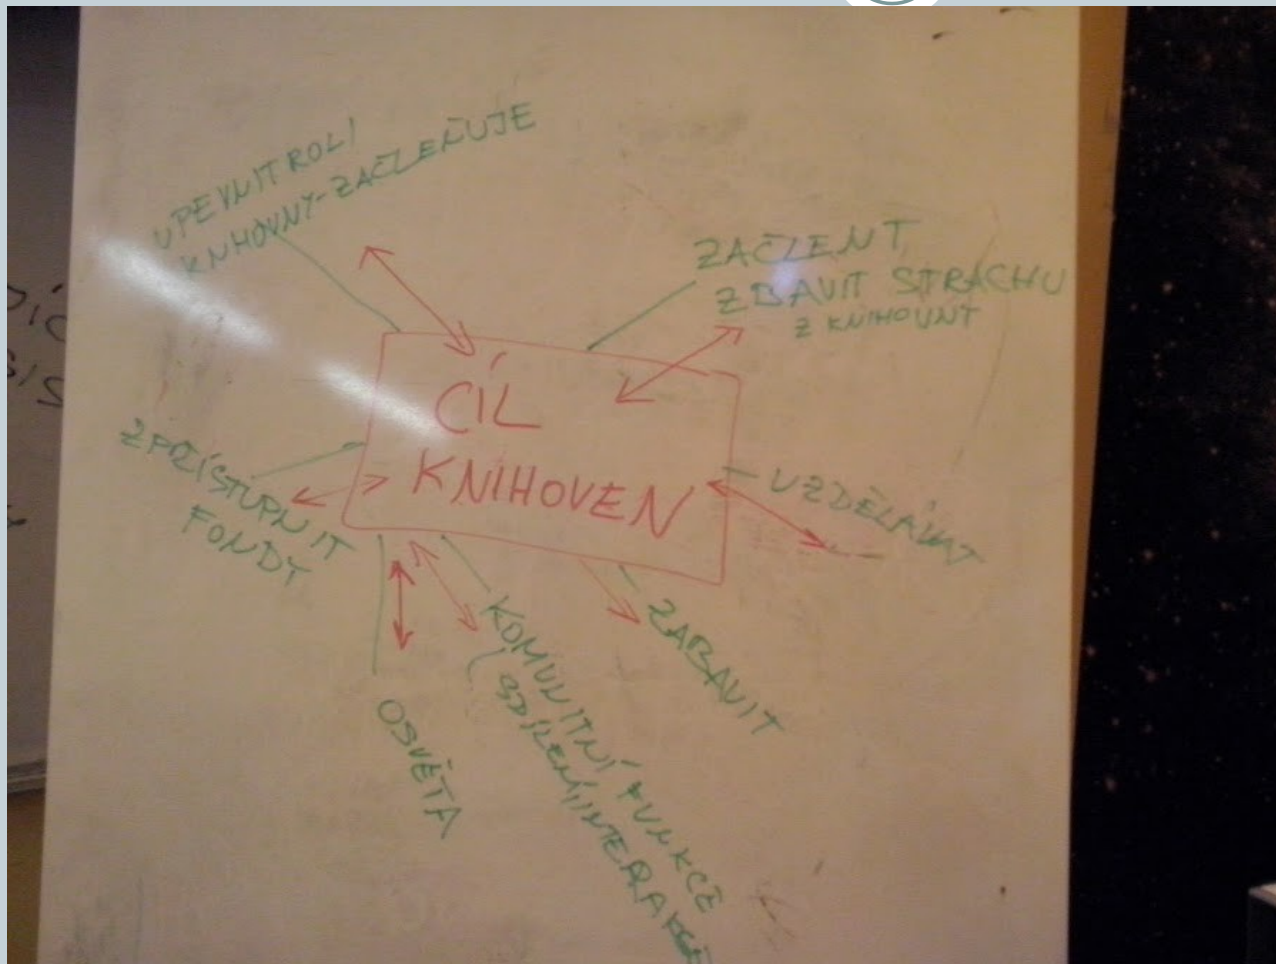 UPEVNIT ROLI
KNIHOVNY-ZAČLEŇUJE
ZAČLENT,
ZBAVIT STRACHU
Z KNIHOVNY
CÍL
KNIHOVEN
ZPŘÍSTUPNIT
FONDY
VZDĚLÁVAT
ZABAVIT
KOMUNITNÍ FUNKCE
(SDÍLENÍ, INTERAKCE
OSVĚTA